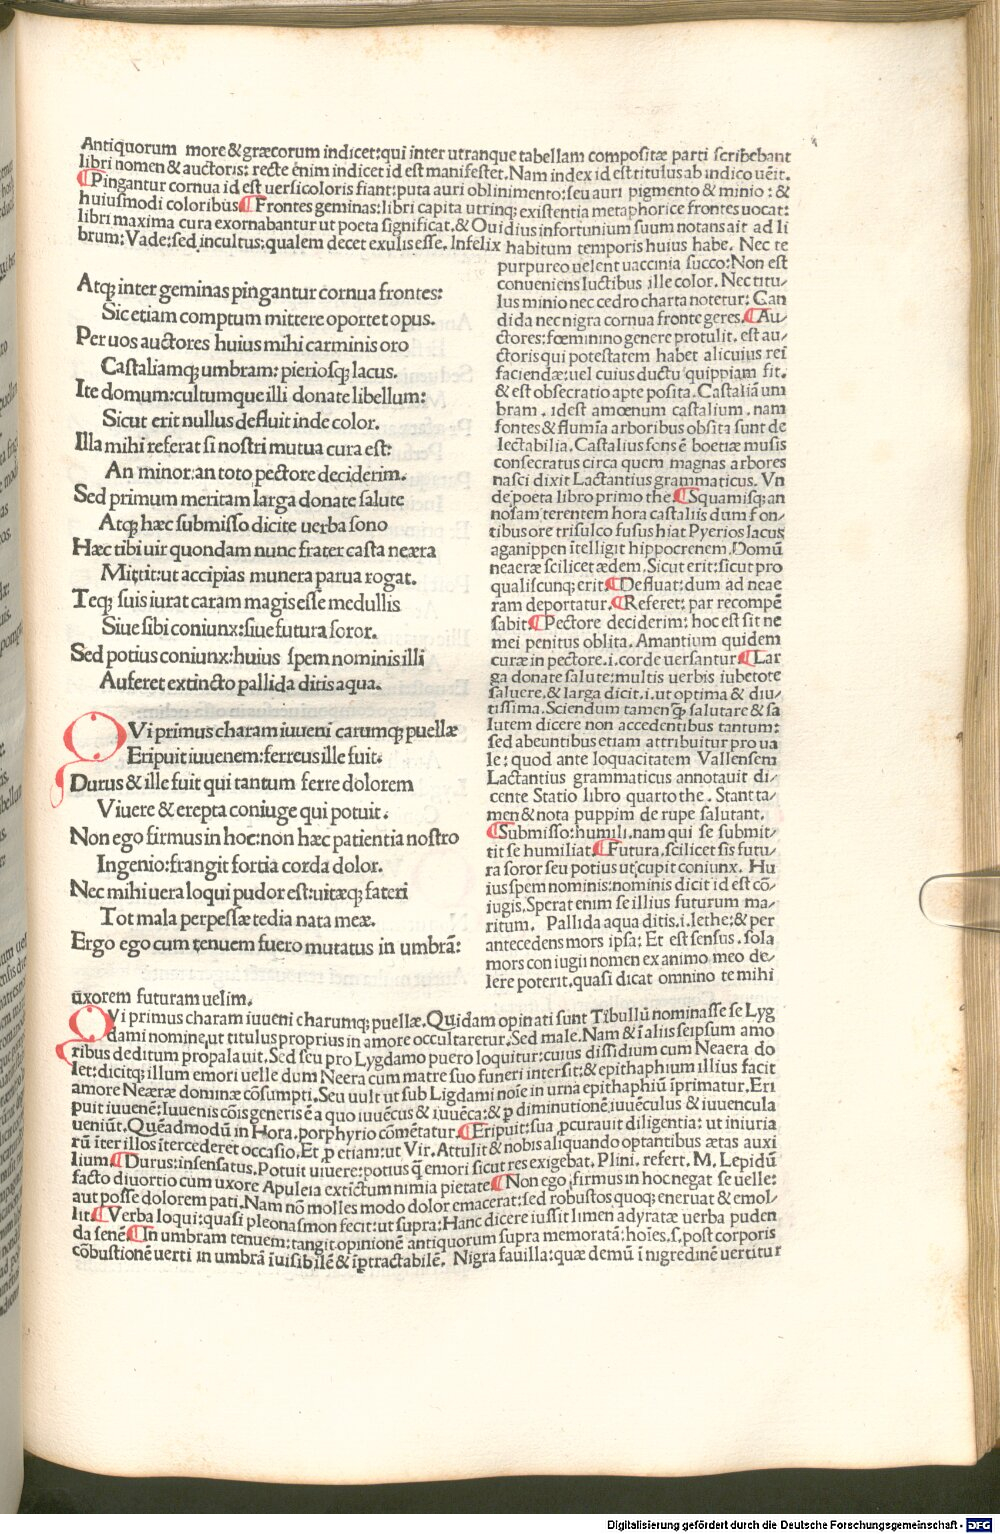 Antiquorum more & græcorum indicet: qui inter utranque tabellam compositæ parti scribebant
libri nomen & auctoris: recte enim indicet id est manifestet. Nam index id est titulus ab indico uēit.
¶Pingantur cornua id est uersicoloris fiant: puta auri oblinimento: seu auri pigmento & minio: &
huiusmodi coloribus ¶Frontes geminas: libri capita utrinq; existentia metaphorice frontes uocat:
libri maxima cura exornabantur ut poeta significat. & Ouidius infortunium suum notans ait ad li
brum: Vade: sed incultus: qualem decet exulis esse. Infelix habitum temporis huius habe. Nec te
purpureo uelent uaccinia succo: Non est
conueniens luctibus ille color. Nec titu/
lus minio nec cedro charta notetur: Can
dida nec nigra cornua fronte geres. ¶Au/
ctores: fœminino genere protulit. est au/
ctoris qui potestatem habet alicuius rei
faciendæ: uel cuius ductu quippiam fit.
& est obsecratio apte posita. Castaliā um
bram. idest amœnum castalium. nam
fontes & flumīa arboribus obsita sunt de
lectabilia. Castalius fons ē boetiæ musis
consecratus circa quem magnas arbores
nasci dixit Lactantius grammaticus. Vn
de poeta libro primo the. ¶Squamisq; an
nosam terentem hora castaliis dum fon/
tibus ore trisulco fusus hiat Pyerios lacus
aganippen ītelligit hippocrenem. Domū
neaeræ scilicet ædem. Sicut erit: sicut pro
qualiscunq; erit: ¶Defluat: dum ad neae
ram deportatur. ¶Referet: par recompē
sabit. ¶Pectore deciderim: hoc est sit ne
mei penitus oblita. Amantium quidem
curæ in pectore. i. corde uersantur. ¶Lar
ga donate salute: multis uerbis iubetote
saluere. & larga dicit. i. ut optima & diu/
tissima. Sciendum tamen q̃ salutare & sa
lutem dicere non accedentibus tantum:
sed abeuntibus etiam attribuitur pro ua
le: quod ante loquacitatem Vallensem
Lactantius grammaticus annotauit di/
cente Statio libro quarto the. Stant ta/
men & nota puppim de rupe salutant.
¶Submisso: humili. nam qui se submit/
tit se humiliat. ¶Futura. scilicet sis futu/
ra soror seu potius ut cupit coniunx. Hu
ius spem nominis: nominis dicit id est cō/
iugis. Sperat enim se illius futurum ma/
ritum. Pallida aqua ditis. i. lethe: & per
antecedens mors ipsa: Et est sensus. sola
mors coniugii nomen ex animo meo de/
lere poterit. quasi dicat omnino te mihi
Atq; inter geminas pingantur cornua frontes:
Sic etiam comptum mittere oportet opus.
Per uos auctores huius mihi carminis oro
Castaliamq; umbram: pieriosq; lacus.
Ite domum: cultumque illi donate libellum:
Sicut erit nullus defluit inde color.
Illa mihi referat si nostri mutua cura est:
An minor: an toto pectore deciderim.
Sed primum meritam larga donate salute
Atq; hæc submisso dicite uerba sono
Hæc tibi uir quondam nunc frater casta neæra
Mittit: ut accipias munera parua rogat.
Teq; suis iurat caram magis esse medullis
Siue sibi coniunx: siue futura soror.
Sed potius coniunx: huius spem nominis illi
Auferet extincto pallida ditis aqua.
QVi primus charam iuueni carumq; puellæ
Eripuit iuuenem: ferreus ille fuit.
Durus & ille fuit qui tantum ferre dolorem
Viuere & erepta coniuge qui potuit.
Non ego firmus in hoc: non hæc patientia nostro
Ingenio: frangit fortia corda dolor.
Nec mihi uera loqui pudor est: uitæq; fateri
Tot mala perpessæ tedia nata meæ.
Ergo ego cum tenuem fuero mutatus in umbrā:
uxorem futuram uelim.
QVi primus charam iuueni charumq; puellæ. Quidam opinati sunt Tibullū nominasse se Lyg
dami nomine, ut titulus proprius in amore occultaretur. Sed male. Nam & ī aliis seipsum amo
ribus deditum propalauit. Sed seu pro Lygdamo puero loquitur: cuius dissidium cum Neaera do
let: dicitq; illum emori uelle dum Neera cum matre suo funeri intersit: & epithaphium illius facit
amore Neæræ dominæ cōsumpti. Seu uult ut sub Ligdami noīe in urna epithaphiū īprimatur. Eri
puit iuuenē: Iuuenis cōis generis ē a quo iuuēcus & iuuēca: & p diminutionē iuuēculus & iuuencula
ueniūt. Quēadmodū in Hora. porphyrio cōmētatur. ¶Eripuit: sua pcurauit diligentia: ut iniuria
rū iter illos itercederet occasio. Et p etiam: ut Vir. Attulit & nobis aliquando optantibus ætas auxi
lium. ¶Durus: insensatus. Potuit uiuere: potius q̃ emori sicut res exigebat. Plini. refert. M. Lepidū
facto diuortio cum uxore Apuleia extictum nimia pietate ¶Non ego firmus in hoc negat se uelle:
aut posse dolorem pati. Nam nō molles modo dolor emacerat: sed robustos quoq; eneruat & emol/
lit. ¶Verba loqui: quasi pleonasmon fecit: ut supra: Hanc dicere iussit limen adyratæ uerba puden
da senē. ¶In umbram tenuem: tangit opinionē antiquorum supra memoratā: hoies. s. post corporis
cōbustionē uerti in umbrā īuisibilē & īptractabilē. Nigra fauilla: quæ demū ī nigredinē uertitur
Digitalisierung gefördert durch die Deutsche Forschungsgemeinschaft - DFG